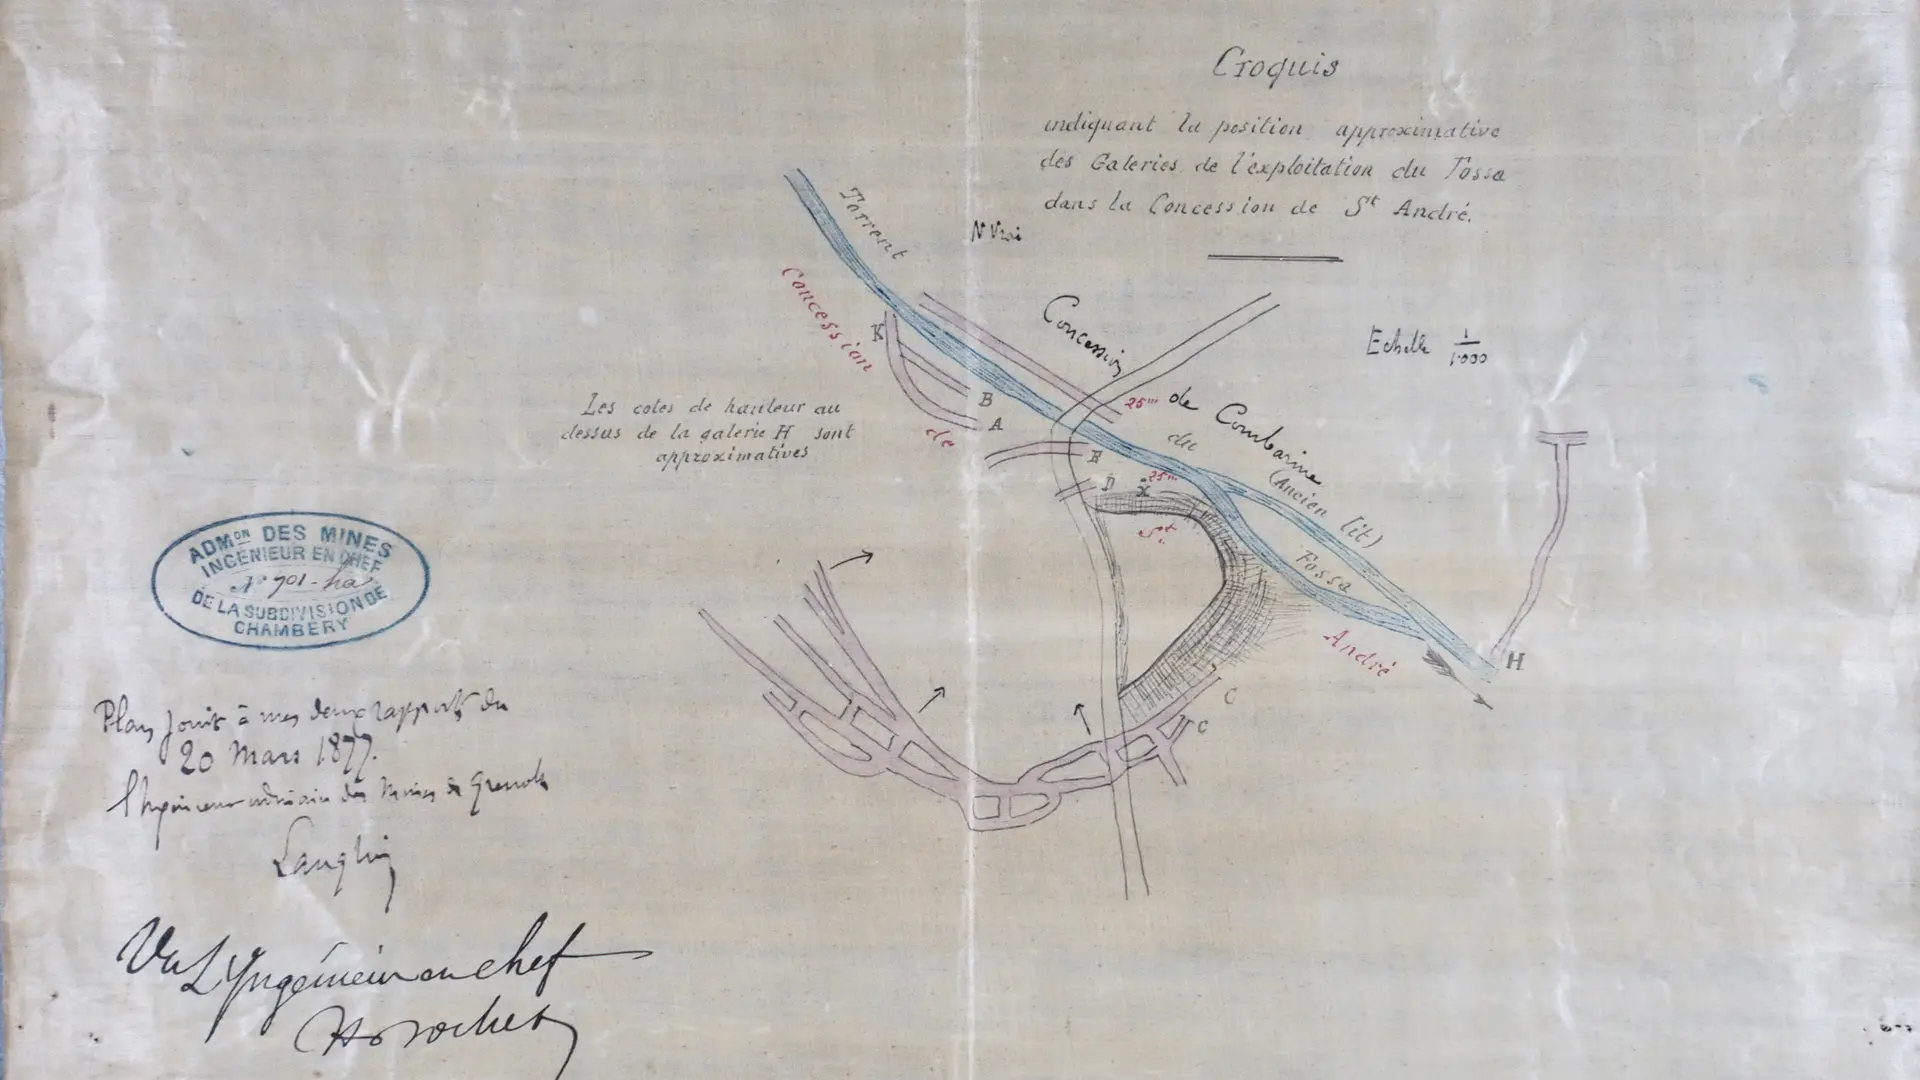 Croquis
indiquant la position approximative
des Galeries de l'exploitation du Fossa
dans la Concession de St André.
N Vrai
Echelle 1/1000
Torrent
du
Fossa
(Ancien lit)
Concession
de
St
André
Concession
de Combarine
25m
25m
K
B
A
E
D
x
H
C
C
Les cotes de hauteur au
dessus de la galerie H sont
approximatives
ADMON DES MINES
INGÉNIEUR EN CHEF
No 901
DE LA SUBDIVISION DE
CHAMBÉRY
Plan joint à mes deux rapports du
20 Mars 1877.
l'Ingénieur ordinaire des Mines de Grenoble
Vu L'Ingénieur en chef